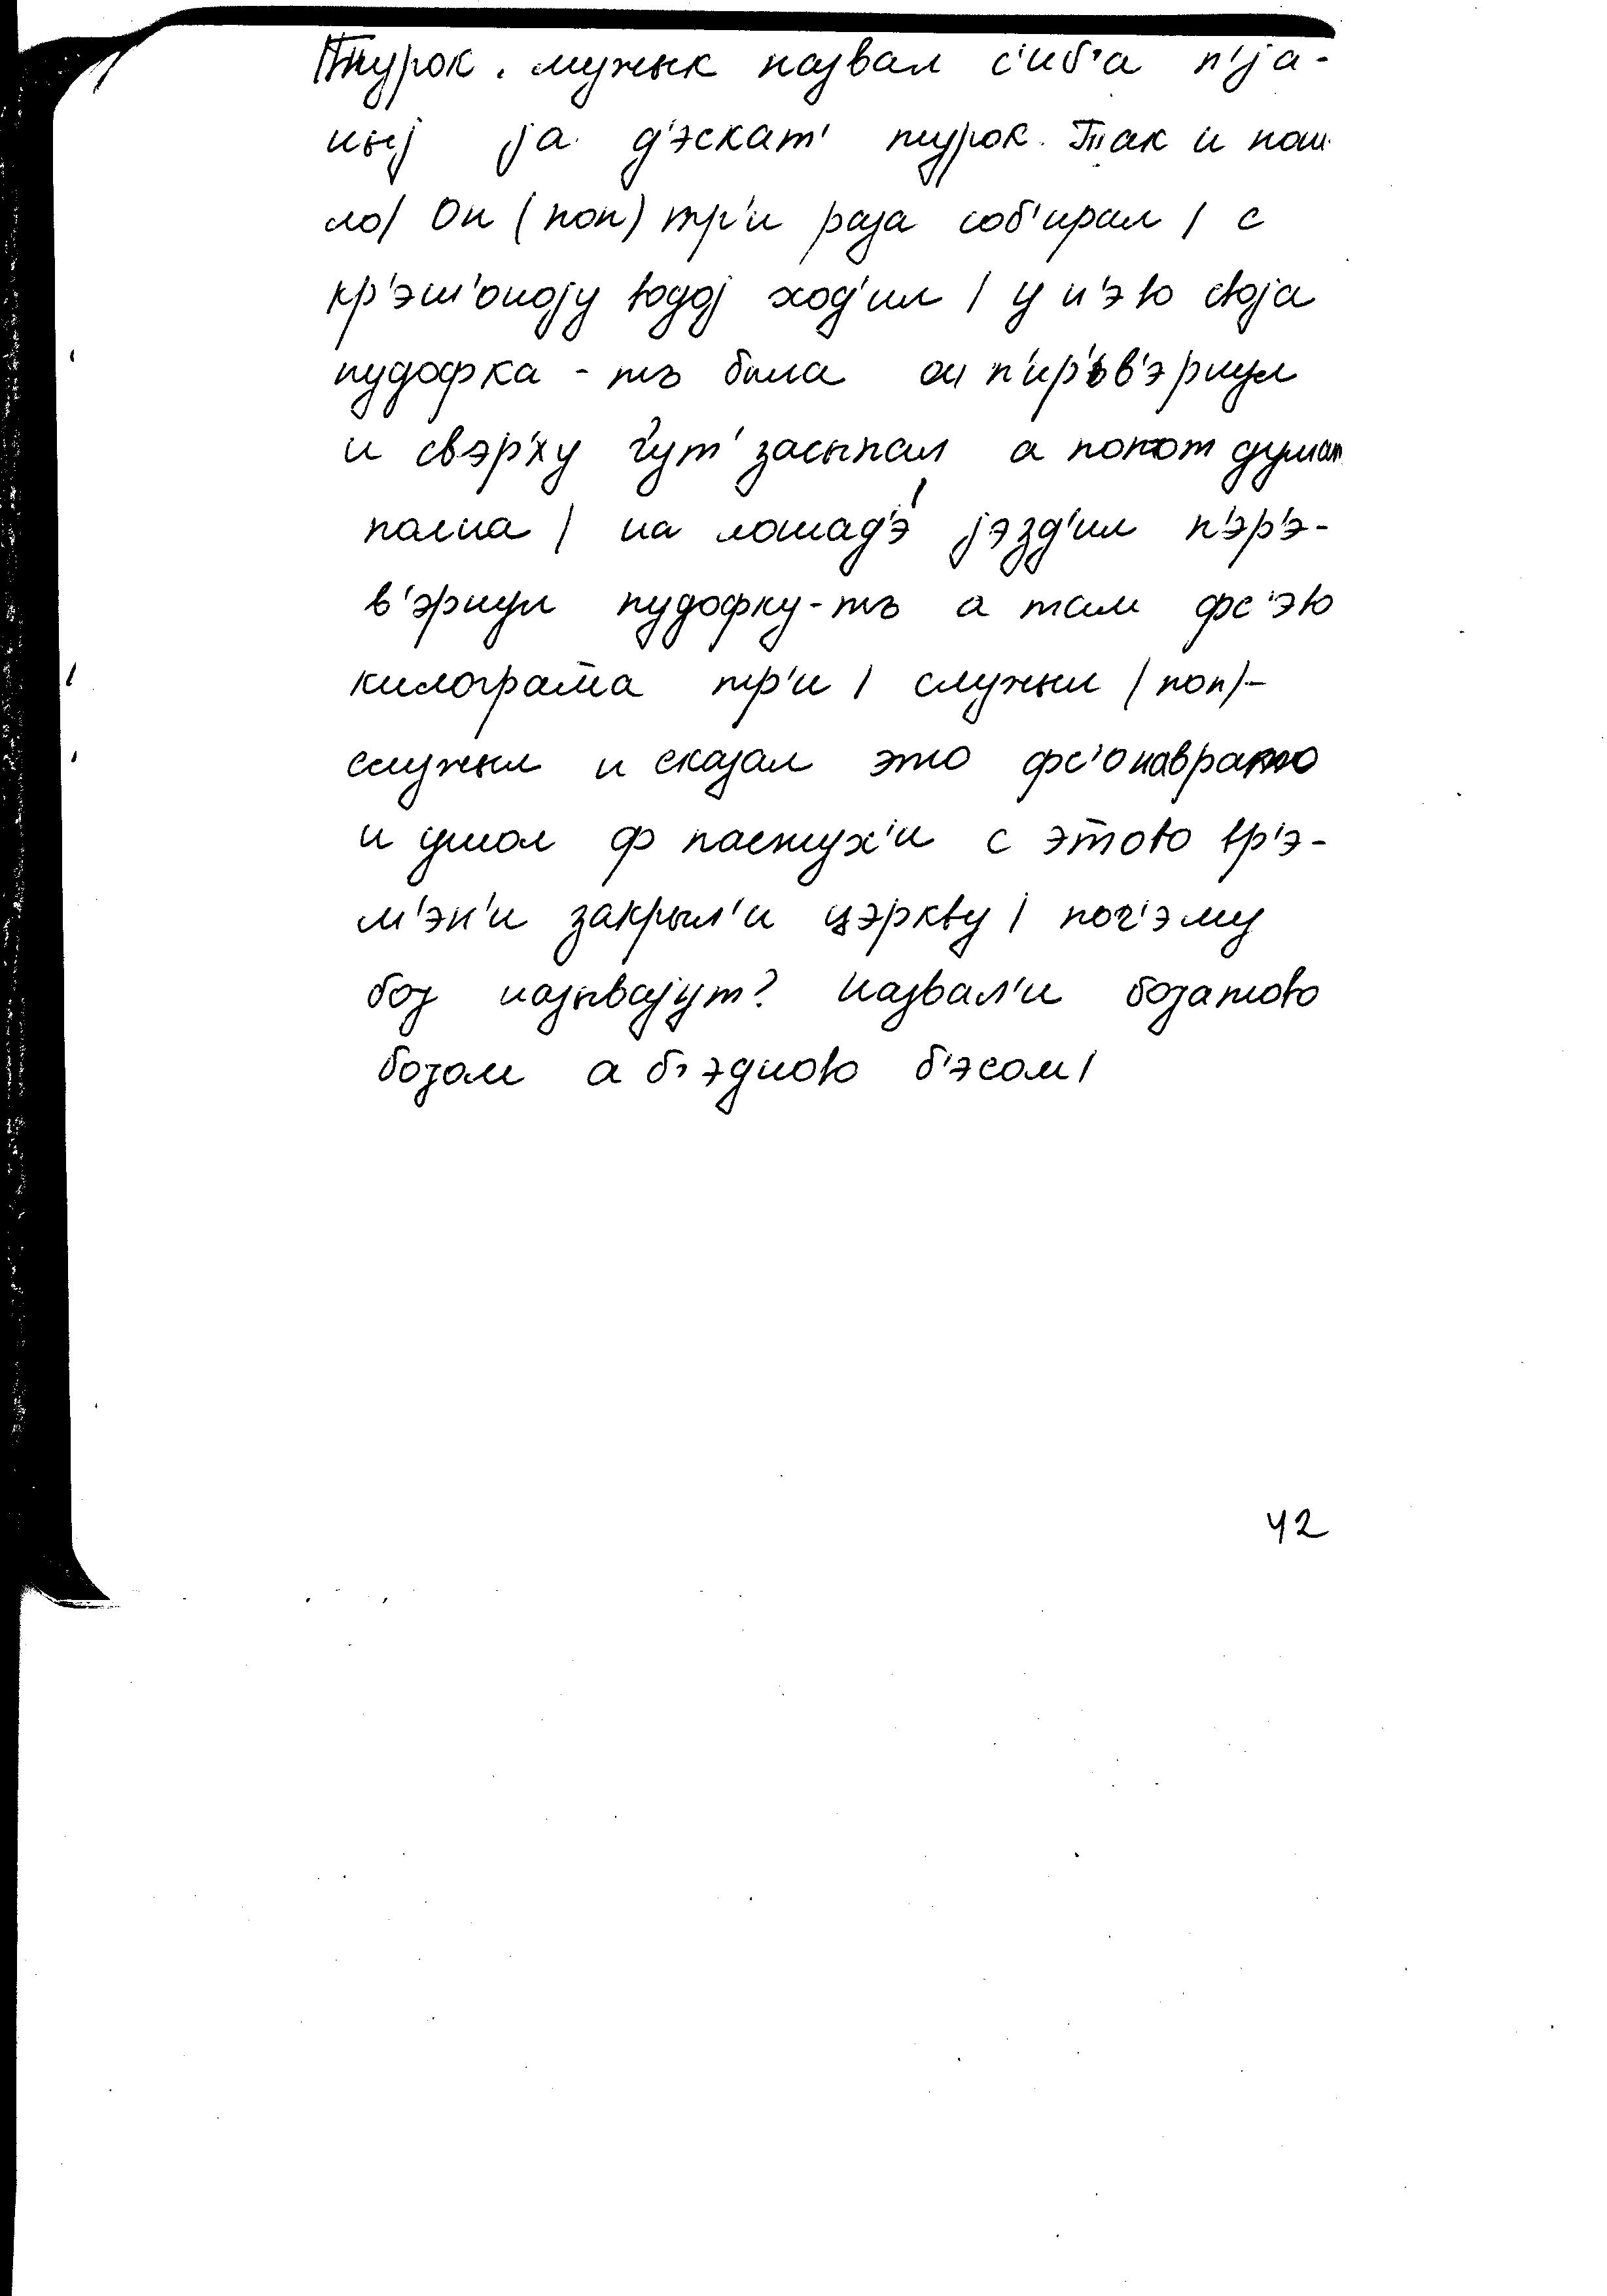 Тнурок. мужык назвал с'иб'а п'jа-
ныj jа д'эскат' турок. Так и пош
ло/ Он (поп) тр'и раза соб'ирал / с
кр'эш'оноjу водоj ход'ил / у н'эво своjа
пудофка - тъ была он п'ир'ьв'эрнул
и свэр'ху ч'ут' засыпал а поп-от думат
полна / на лошад'э́ jэзд'ил п'эр'э-
в'эрнул пудофку-тъ а там фс'эво
килограм̄а тр'и / служыл (поп)-
служыл и сказал это фс'о навратно
и ушол ф пастух'и с этово вр'э-
м'эн'и закрыл'и цэркву / поч'эму
боγ называjут? Назвал'и боγатово
боγом а б'эдново б'эсом /
42